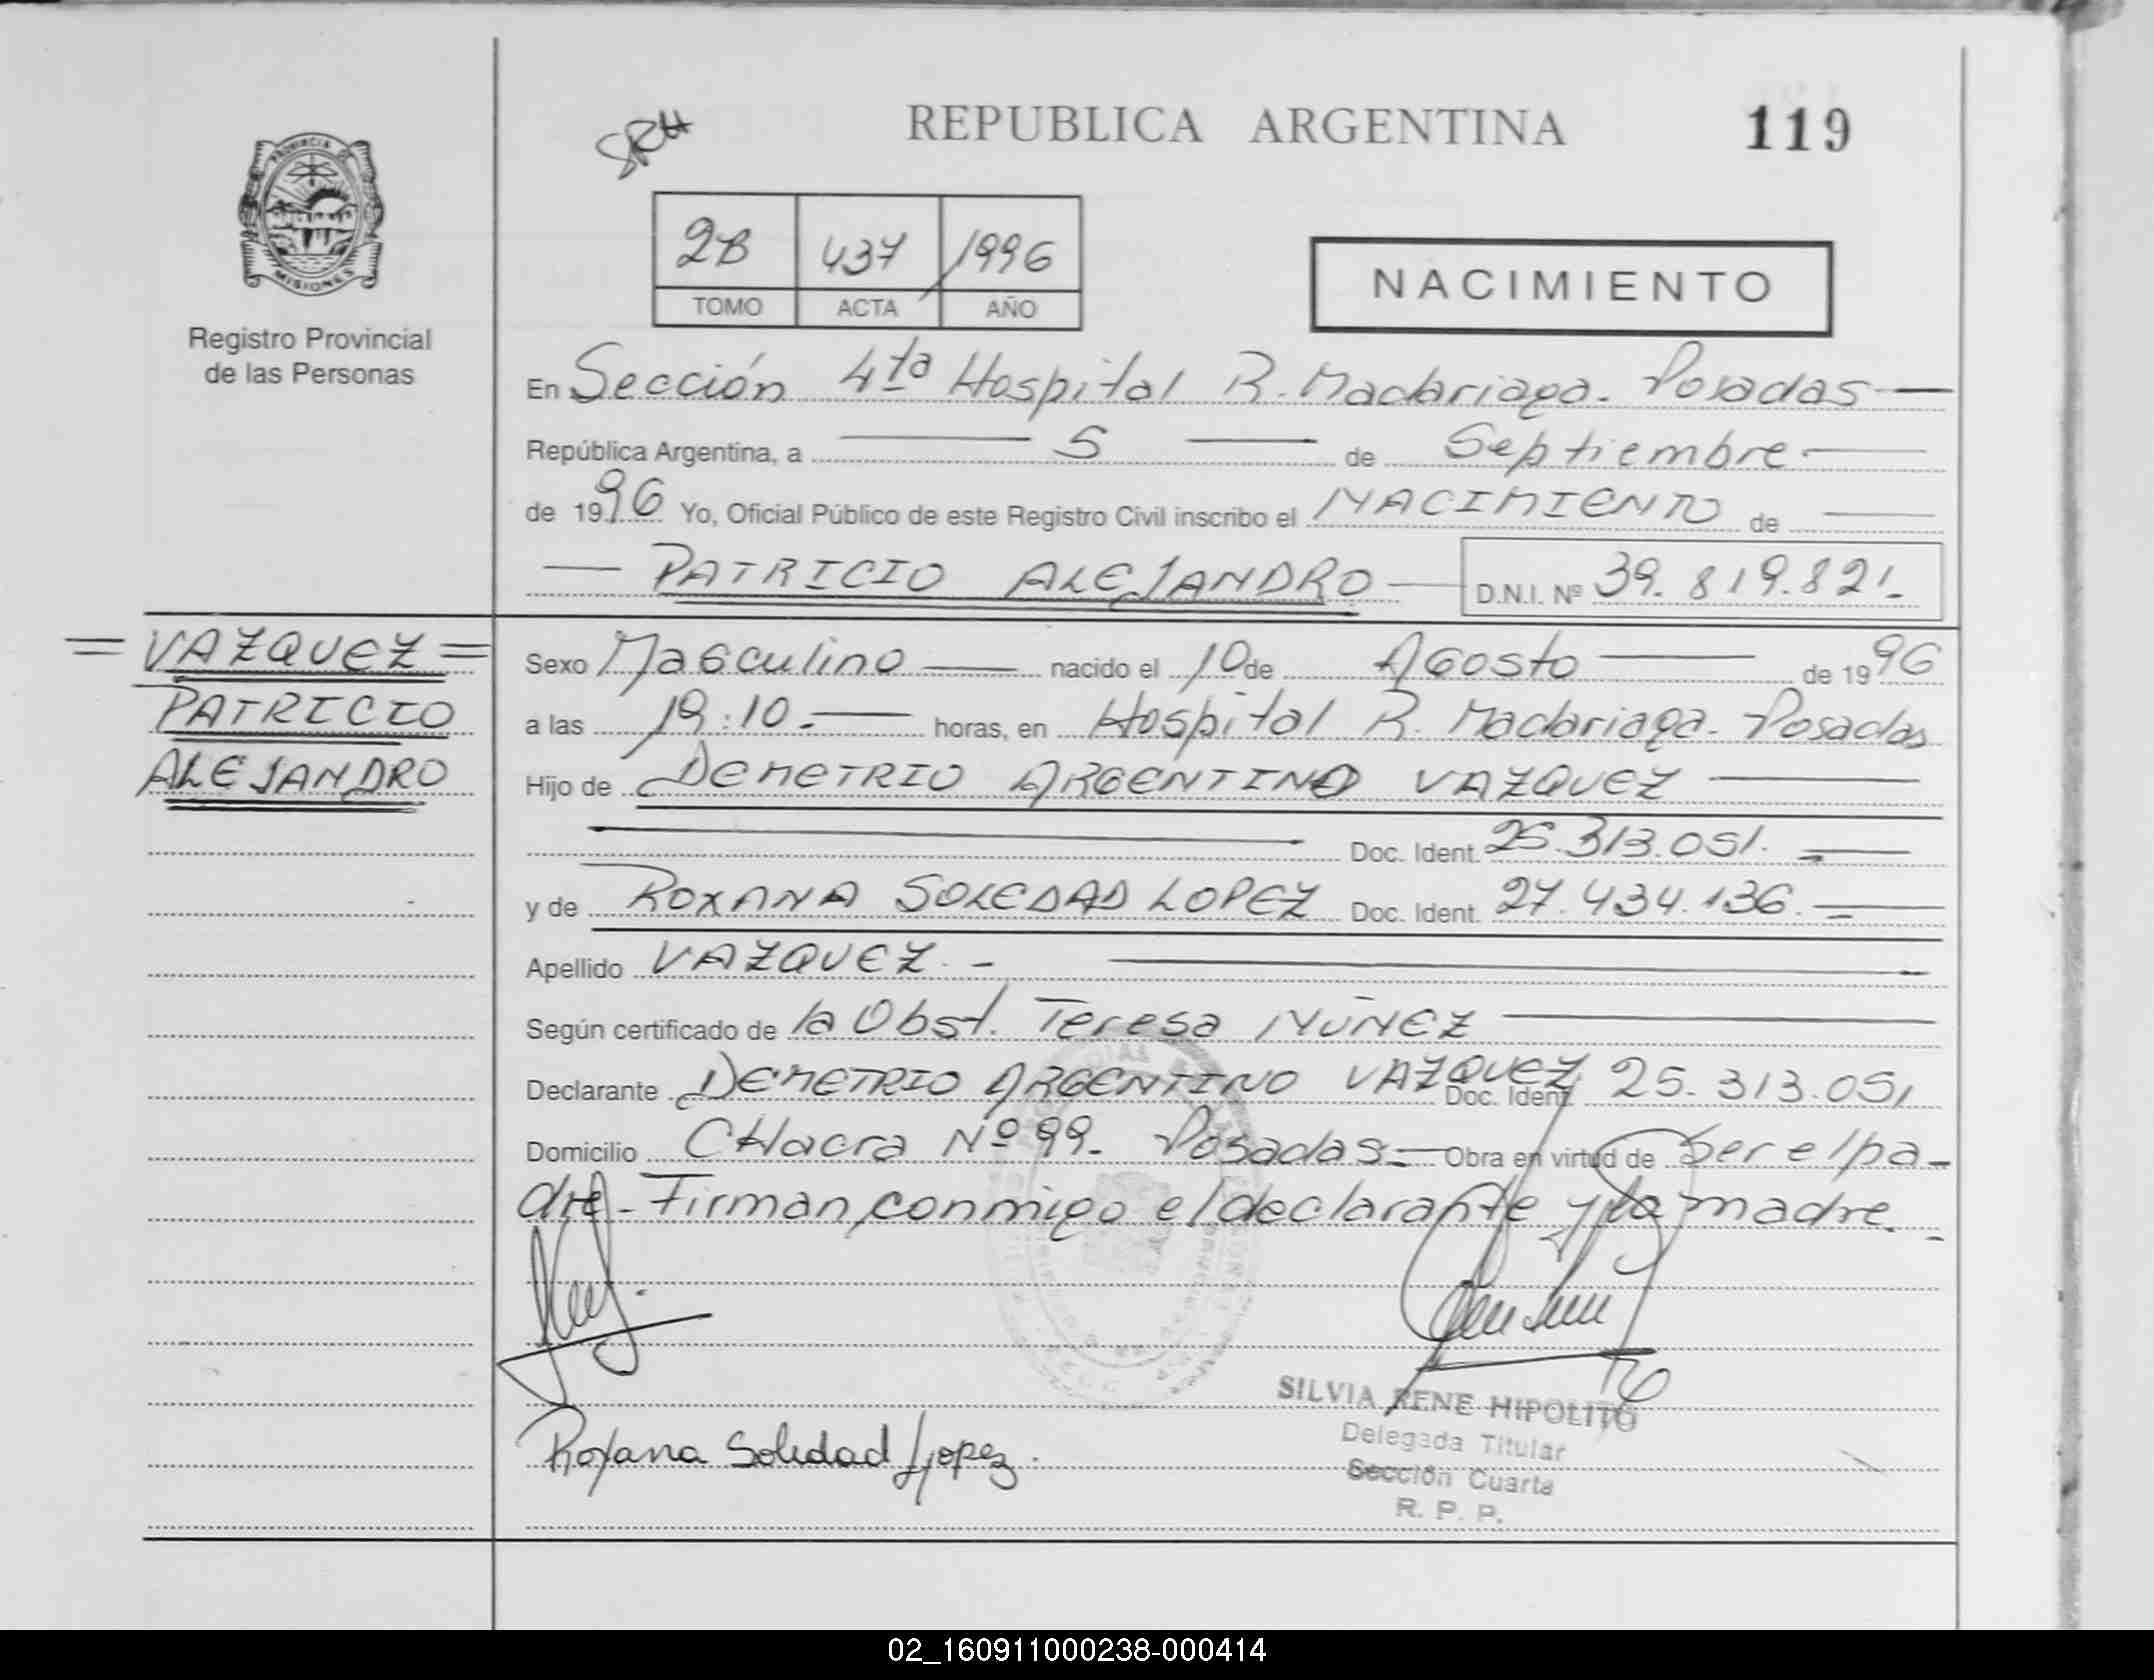 REPUBLICA ARGENTINA 119
SRH
PROVINCIA DE
MISIONES
Registro Provincial
de las Personas
2B 437 1996
TOMO ACTA AÑO
NACIMIENTO
En Sección 4ta Hospital R. Madariaga. Posadas
República Argentina, a 5 de Septiembre
de 1996 Yo, Oficial Público de este Registro Civil inscribo el NACIMIENTO de
PATRICIO ALEJANDRO D.N.I. Nº 39.819.821.
= VAZQUEZ =
PATRICIO
ALEJANDRO
Sexo Masculino nacido el 10 de Agosto de 1996
a las 19:10. horas, en Hospital R. Madariaga. Posadas
Hijo de DEMETRIO ARGENTINO VAZQUEZ
Doc. Ident. 25.313.051.
y de ROXANA SOLEDAD LOPEZ Doc. Ident. 27.434.136.
Apellido VAZQUEZ. -
Según certificado de la Obst. Teresa NUÑEZ
Declarante DEMETRIO ARGENTINO VAZQUEZ Doc. Ident. 25.313.051
Domicilio CHacra Nº 99. Posadas. Obra en virtud de Ser el pa-
dre - Firman conmigo el declarante y la madre. -
SILVIA RENE HIPOLITO
Delegada Titular
Sección Cuarta
R. P. P.
Roxana Soledad Lopez.
02_160911000238-000414